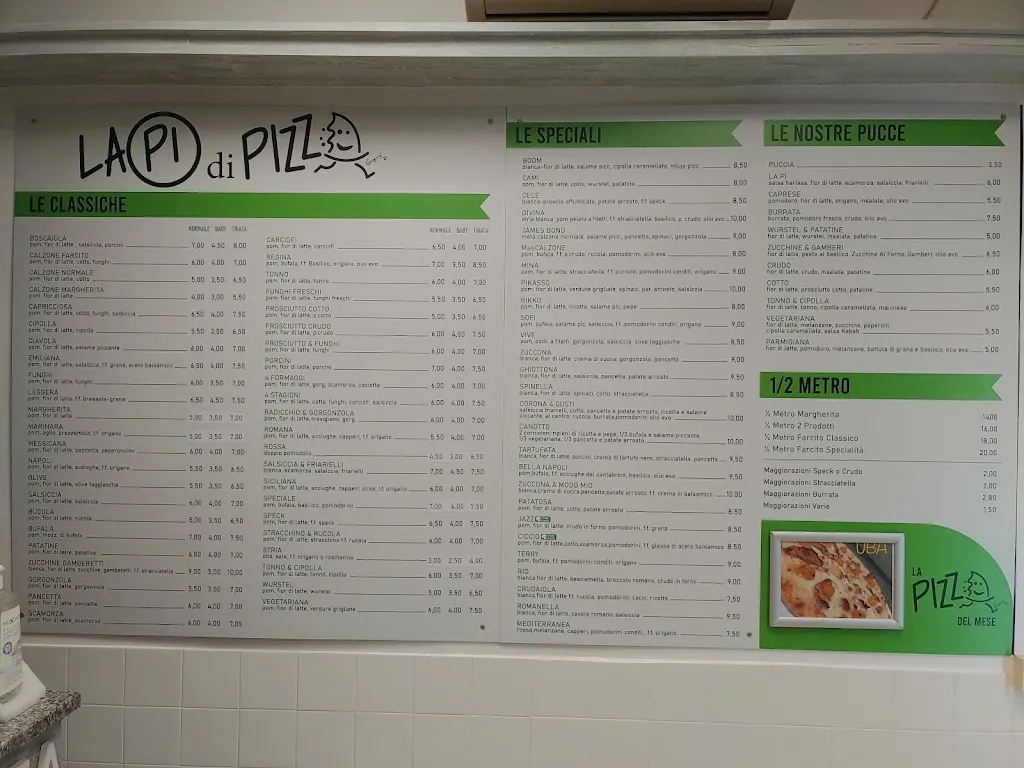 LA PI di PIZZ
LE CLASSICHE
NORMALE BABY TIRATA
BOSCAIOLA
pom, fior di latte, salsiccia, porcini 7,00 4,50 8,00
CALZONE FARCITO
pom, fior di latte, cotto, funghi 6,00 4,00 7,00
CALZONE NORMALE
pom, fior di latte, cotto 5,00 3,50 6,50
CALZONE MARGHERITA
pom, fior di latte 4,00 3,00 5,50
CAPRICCIOSA
pom, fior di latte, cotto, funghi, salsiccia 6,50 4,00 7,50
CIPOLLA
pom, fior di latte, cipolla 5,50 3,50 6,50
DIAVOLA
pom, fior di latte, salame piccante 6,00 4,00 7,00
EMILIANA
pom, fior di latte, salsiccia, f.f. grana, aceto balsamico 6,50 4,00 7,50
FUNGHI
pom, fior di latte, funghi 6,00 3,50 7,00
LEGGERA
pom, fior di latte, f.f. bresaola-grana 6,50 4,50 7,50
MARGHERITA
pom, fior di latte 5,00 3,50 7,00
MARINARA
pom, aglio, prezzemolo, f.f. origano 5,00 3,50 7,00
MESSICANA
pom, fior di latte, pancetta, peperoncini 6,00 4,00 7,00
NAPOLI
pom, fior di latte, acciughe, f.f. origano 5,50 3,50 6,50
OLIVE
pom, fior di latte, olive taggiasche 5,50 3,50 6,50
SALSICCIA
pom, fior di latte, salsiccia 6,00 4,00 7,00
RUCOLA
pom, fior di latte, rucola 5,00 3,50 6,50
BUFALA
pom, mozz. di bufala 7,00 4,00 7,50
PATATINE
pom, fior di latte, patatine 6,00 4,00 7,00
ZUCCHINE GAMBERETTI
bianca, fior di latte, zucchine, gamberetti, f.f. stracciatella 9,00 5,00 10,00
GORGONZOLA
pom, fior di latte, gorgonzola 5,50 3,50 7,00
PANCETTA
pom, fior di latte, pancetta 6,00 4,00 7,00
SCAMORZA
pom, fior di latte, scamorza 6,00 4,00 7,00
NORMALE BABY TIRATA
CARCIOFI
pom, fior di latte, carciofi 6,50 4,00 7,00
REGINA
pom, bufala, f.f. Basilico, origano, olio evo 7,00 3,50 8,50
TONNO
pom, fior di latte, tonno 6,00 4,00 7,00
FUNGHI FRESCHI
pom, fior di latte, funghi freschi 5,50 3,50 6,50
PROSCIUTTO COTTO
pom, fior di latte, p.cotto 5,00 3,50 6,50
PROSCIUTTO CRUDO
pom, fior di latte, p.crudo 6,00 4,00 7,50
PROSCIUTTO & FUNGHI
pom, fior di latte, p, funghi 6,00 4,00 7,00
PORCINI
pom, fior di latte, porcini 7,00 4,00 7,50
4 FORMAGGI
pom, fior di latte, gorg, scamorza, caciotta 6,00 4,00 7,00
4 STAGIONI
pom, fior di latte, cotto, funghi, carciofi, salsiccia 6,50 4,00 7,50
RADICCHIO & GORGONZOLA
pom, fior di latte, trevigiano, gorg 6,00 4,00 7,00
ROMANA
pom, fior di latte, acciughe, capperi, f.f. origano 5,50 4,00 7,00
ROSSA
doppio pomodoro 4,50 3,00 6,50
SALSICCIA & FRIARIELLI
bianca, scamorza, salsiccia, friarielli 7,00 4,50 7,50
SICILIANA
pom, fior di latte, acciughe, capperi, olive, f.f. origano 6,00 4,00 7,00
SPECIALE
pom, bufala, basilico, pomodorini 7,00 4,00 7,50
SPECK
pom, fior di latte, f.f. speck 6,50 4,00 7,50
STRACCHINO & RUCOLA
pom, fior di latte, stracchino f.f. rucola 6,00 4,00 7,00
STRIA
olio, sale, f.f. origano o rosmarino 3,00 2,50 4,00
TONNO & CIPOLLA
pom, fior di latte, tonno, cipolla 6,00 3,50 7,00
WURSTEL
pom, fior di latte, wurstel 5,00 3,50 6,50
VEGETARIANA
pom, fior di latte, verdure grigliate 6,00 4,00 7,50
LE SPECIALI
BOOM
bianca-fior di latte, salame picc, cipolla caramellata, nduje picc 8,50
CAMI
pom, fior di latte, cotto, wurstel, patatine 8,00
CELE
bianca-provola affumicata, patate arrosto, f.f. speck 8,50
DIVINA
stria bianca, pom pelato a filetti, f.f. stracciatella, basilico, p. crudo, olio evo 10,00
JAMES BOND
metà calzone normale, salame picc, pancetta, spinaci, gorgonzola 9,00
MasCALZONE
pom, bufala, f.f. p.crudo, rucola, pomodorini, olio evo 8,00
MINA
pom, fior di latte, stracciatella, f.f. p.crudo, pomodorini conditi, origano 9,00
PIKASSO
pom, fior di latte, verdure grigliate, spinaci, pat. arrosto, salsiccia 10,00
RIKKO'
pom, fior di latte, ricotta, salame pic, pepe 8,00
SOFI
pom, bufala, salame pic, salsiccia, f.f. pomodorini conditi, origano 9,00
VIVE
pom, pom. a filetti, gorgonzola, salsiccia, olive taggiasche 8,50
ZUCCONA
bianca, fior di latte, crema di zucca, gorgonzola, pancetta 9,00
GHIOTTONA
bianca, fior di latte, salsiccia, pancetta, patate arrosto 9,50
SPINELLA
bianca, fior di latte, spinaci, cotto, stracciatella 8,50
CORONA 4 GUSTI
salsiccia friarielli, cotto, pancetta e patate arrosto, ricotta e salame
piccante, al centro: rucola, burrata, pomodorini, olio evo 10,00
CANOTTO
2 cornicioni ripieni di ricotta e pepe; 1/3 bufala e salame piccante,
1/3 vegetariana, 1/3 pancetta e patate arrosto 10,00
TARTUFATA
bianca, fior di latte, porcini, crema di tartufo nero, stracciatella, pancetta 9,50
BELLA NAPOLI
pom, bufala, f.f. acciughe del cantabrico, basilico, olio evo 9,50
ZUCCONA A MODO MIO
bianca, crema di zucca, pancetta, patate arrosto, f.f. crema di balsamico 10,00
PATATOSA
pom, fior di latte, cotto, patate arrosto 8,50
JAZZ
pom, fior di latte, crudo in forno, pomodorini, f.f. grana 8,50
CICCIO
pom, fior di latte, cotto, scamorza, pomodorini, f.f. glassa di aceto balsamico 8,50
TERRY
pom, bufala, f.f. pomodorini conditi, origano 9,00
RIO
bianca, fior di latte, besciamella, broccolo romano, crudo in forno 9,00
CRUDAIOLA
bianca, fior di latte, f.f. rucola, pomodorini, cacio, ricotta 7,50
ROMANELLA
bianca, fior di latte, cavolo romano, salsiccia 9,50
MEDITERRANEA
rossa, melanzane, capperi, pomodorini conditi, f.f. origano 7,50
LE NOSTRE PUCCE
PUCCIA 3,50
LA PI
salsa harissa, fior di latte, scamorza, salsiccia, friarielli 6,00
CAPRESE
pomodoro, fior di latte, origano, insalata, olio evo 5,50
BURRATA
burrata, pomodoro fresco, crudo, olio evo 7,50
WURSTEL & PATATINE
fior di latte, wurstel, insalata, patatine 5,00
ZUCCHINE & GAMBERI
fior di latte, pesto al basilico, Zucchine Al Forno, Gamberi, olio evo 6,50
CRUDO
fior di latte, crudo, insalata, patatine 6,00
COTTO
fior di latte, prosciutto cotto, patatine 5,50
TONNO & CIPOLLA
fior di latte, tonno, cipolla caramellata, maionese 6,00
VEGETARIANA
fior di latte, melanzane, zucchine, peperoni,
cipolla caramellata, salsa Kebab 5,50
PARMIGIANA
fior di latte, pomodoro, melanzane, battuta di grana e basilico, olio evo 5,00
1/2 METRO
½ Metro Margherita 14,00
½ Metro 2 Prodotti 16,00
½ Metro Farcito Classico 18,00
½ Metro Farcito Specialità 20,00
Maggiorazioni Speck o Crudo 2,00
Maggiorazioni Stracciatella 2,00
Maggiorazioni Burrata 2,80
Maggiorazioni Varie 1,50
UBA
LA
PIZZ
DEL MESE